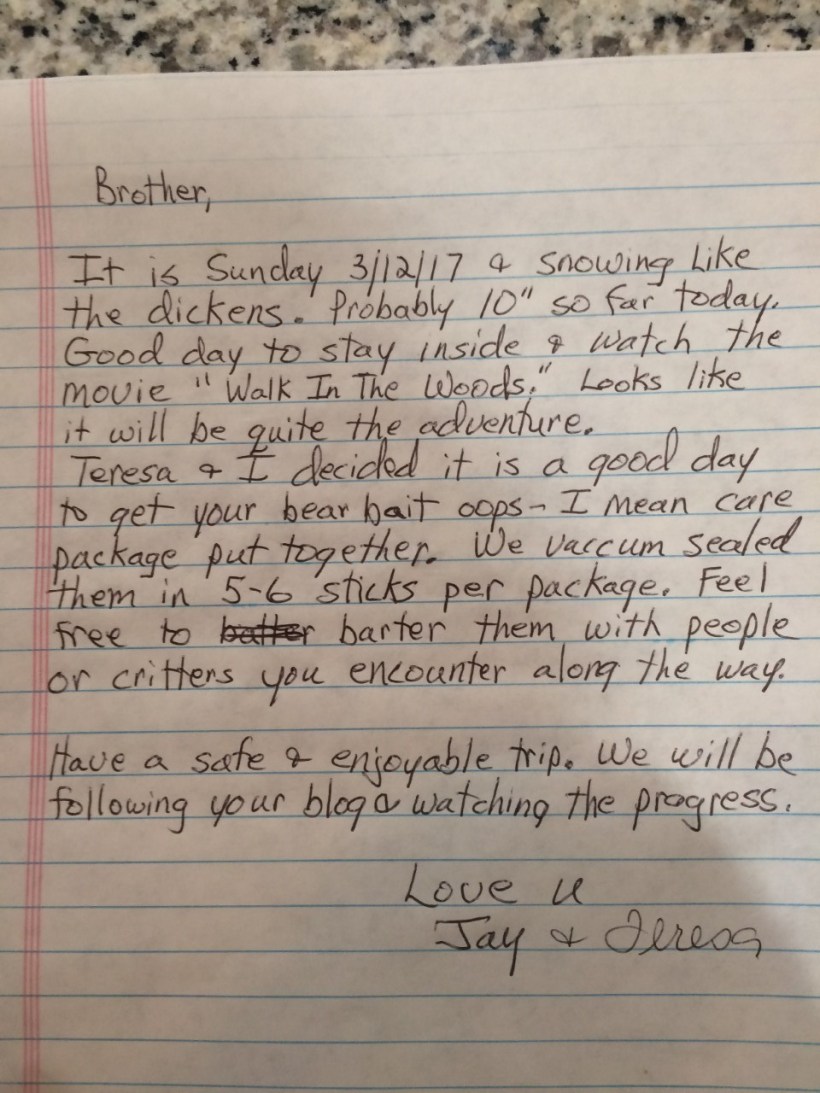 Brother,
It is Sunday 3/12/17 & snowing like
the dickens. Probably 10" so far today.
Good day to stay inside & watch the
movie "Walk In The Woods." Looks like
it will be quite the adventure.
Teresa & I decided it is a good day
to get your bear bait oops - I mean care
package put together. We vaccum sealed
them in 5-6 sticks per package. Feel
free to barter them with people
or critters you encounter along the way.
Have a safe & enjoyable trip. We will be
following your blog & watching the progress.
Love u
Jay & Teresa